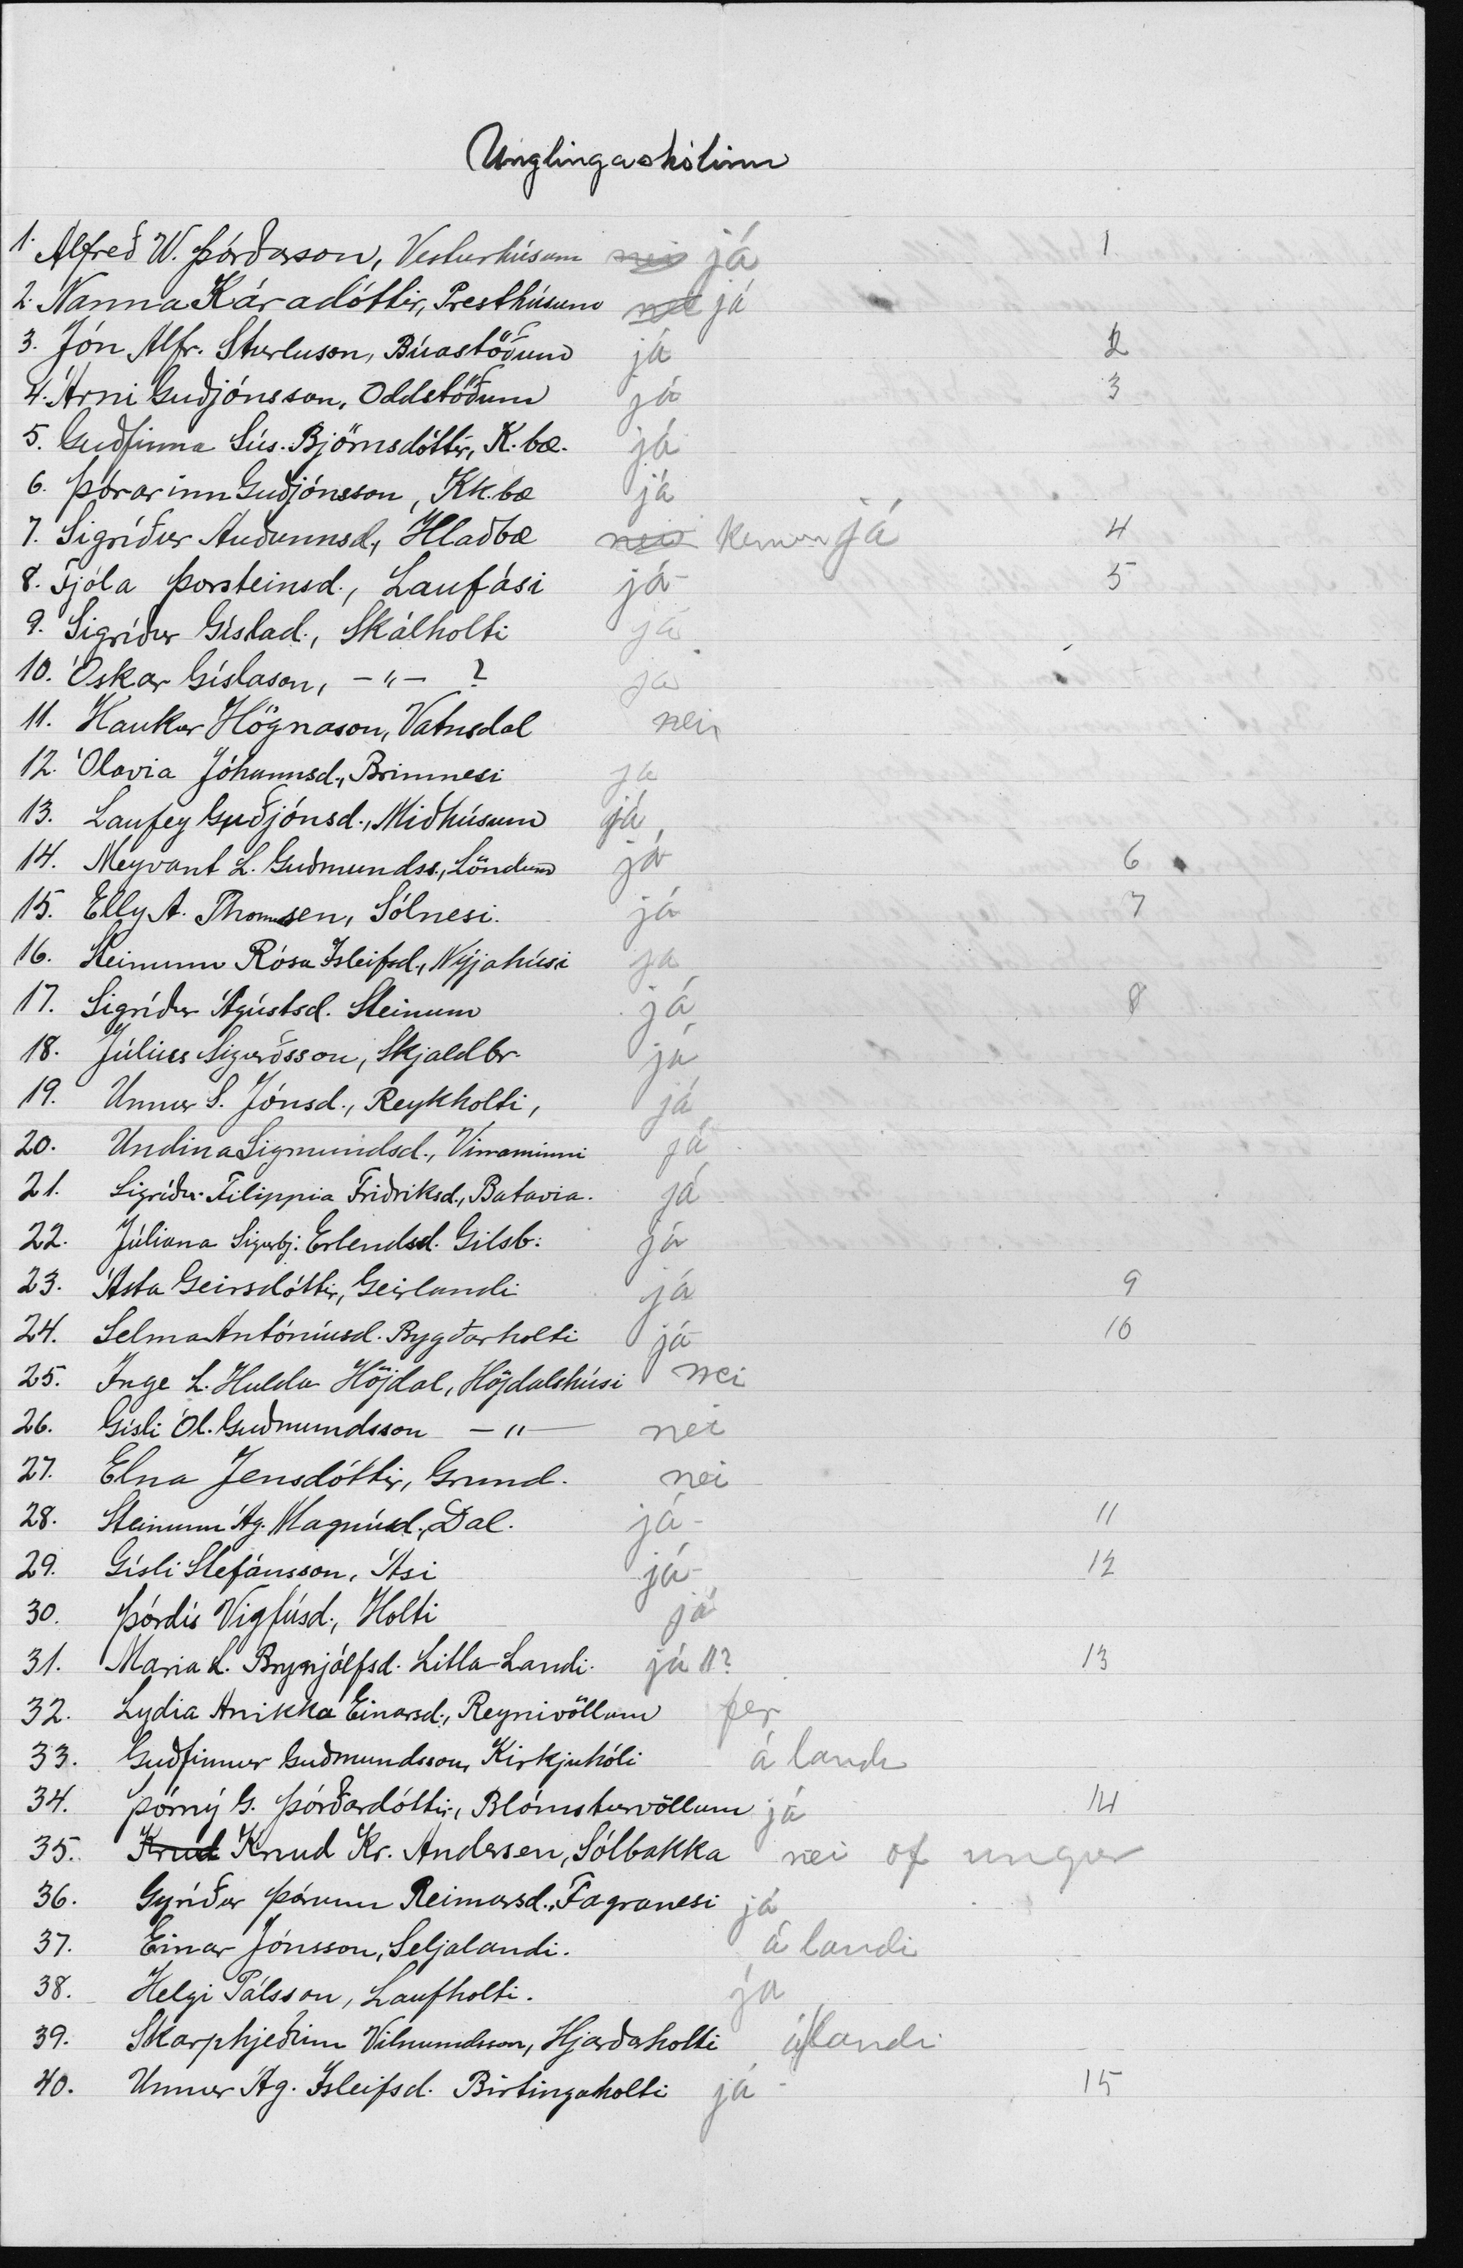 Unglingaskólinn
1. Alfreð W. Þórðarson, Vesturhúsum nei já 1
2. Nanna Káradóttir, Presthúsum nei já
3. Jón Alfr. Sturluson, Búastöðum já 2
4. Árni Guðjónsson, Oddstöðum já 3
5. Guðfinna Sús. Björnsdóttir, K.bæ. já
6. Þórarinn Guðjónsson, Kk.bæ já
7. Sigríður Auðunnsd., Hlaðbæ nei kemur já 4
8. Fjóla Þorsteinsd., Laufási já- 5
9. Sigríður Gíslad., Skálholti já
10. Óskar Gíslason, -"- ? já
11. Haukur Högnason, Vatnsdal nei
12. Ólavia Jóhannsd., Brimnesi ja
13. Laufey Guðjónsd., Miðhúsum já
14. Meyvant L. Guðmundss., Löndum já 6
15. Elly A. Thomsen, Sólnesi. já 7
16. Steinunn Rósa Ísleifsd., Nýjahúsi ja
17. Sigríður Ágústsd. Steinum já 8
18. Júlíus Sigurðsson, Skjaldbr. já
19. Unnur S. Jónsd., Reykholti, já
20. Undina Sigmundsd., Vinaminni já
21. Sigríður Filippia Friðriksd., Batavia. já
22. Júliana Sigurbj: Erlendsd. Gilsb: já
23. Ásta Geirsdóttir, Geirlandi já 9
24. Selma Antóníusd. Byggðarholti já 10
25. Inge L. Hulda Höjdal, Höjdalshúsi nei
26. Gísli Ól. Guðmundsson -"- nei
27. Elna Jensdóttir, Grund. nei
28. Steinunn Ág. Magnúsd., Dal. já- 11
29. Gísli Stefánsson, Ási já- 12
30. Þórdís Vigfúsd., Holti já
31. Maria L. Brynjólfsd. Litla-Landi. já 1? 13
32. Lydia Anikka Einarsd., Reynivöllum fer
33. Guðfinnur Guðmundsson, Kirkjuhóli á landi
34. Þórný G. Þórðardóttir, Blómsturvöllum já 14
35. Knud Knud Kr. Andersen, Sólbakka nei of ungur
36. Gyríður Þórunn Reimarsd., Fagranesi já
37. Einar Jónsson, Seljalandi. á landi
38. Helgi Pálsson, Laufholti. já
39. Skarphjeðinn Vilmundsson, Hjarðarholti á landi
40. Unnur Ág. Ísleifsd. Birtingaholti já - 15